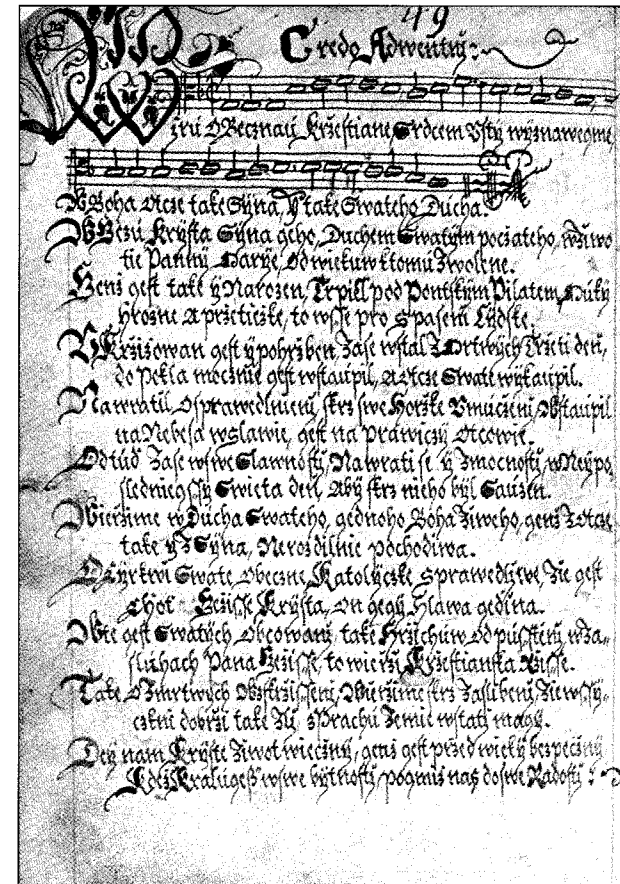 49
Credo Adwentnij:
Wiru Obecznau Kržestiane Srdcem Usty wyznawegme
W Boha Otcze take Syna, y take Swateho Ducha.
W Gezu Krysta Syna geho, Duchem Swatym počzateho, w žiwo
tie Panny Marye, od wiekuw k tomu Zwolene.
Genž gest take y Narozen, Trpiel pod Pontskym Pilatem, Muky
hrozne a pržetiežke, to wsse pro Spaseni Lydske.
Vkržižowan gest y pohržben, Zase wstal z Mrtwych Tržeti den,
do Pekla mocznie gest wstaupil, a Otcze Swate wykaupil.
Nawratil Osprawedlnieni, skrz swe Horžke Vmuczeni, Wstaupil
na Nebesa w Slawie, gest na Prawiczy Otcowie.
Odtud Zase w swe Slawnosty, Nawrati se y z mocnosty, w Neypo
sledniegssy Swieta den, Aby skrz nieho byl Sauzen.
Wieržime w Ducha Swateho, gednoho Boha Žiweho, genž z Otcze
take y z Syna, Nerozdilnie pochodiwa.
O Cyrkwi Swate, Obeczne, Katolyczke Sprawedliwe, Že gest
Chot Gežisse Krysta, On gegy Hlawa gedina.
W te gest Swatych Obcowani, take Hržichuw Odpusstieni, w Za-
sluhach Pana Gežisse, to wierži Kržestianska
Take O Zmrtwych Wzkržisseni, Wieržime skrz Zaslibeni, Že wssy-
czkni dobrži take Zli, z Prachu Zemie wstati magy.
Dey nam Kryste Žiwot wieczny, genž gest pržed wieky bezpeczny
Kdež Kralugess w swe bytnosty, pogmiž nas do swe Radosty :